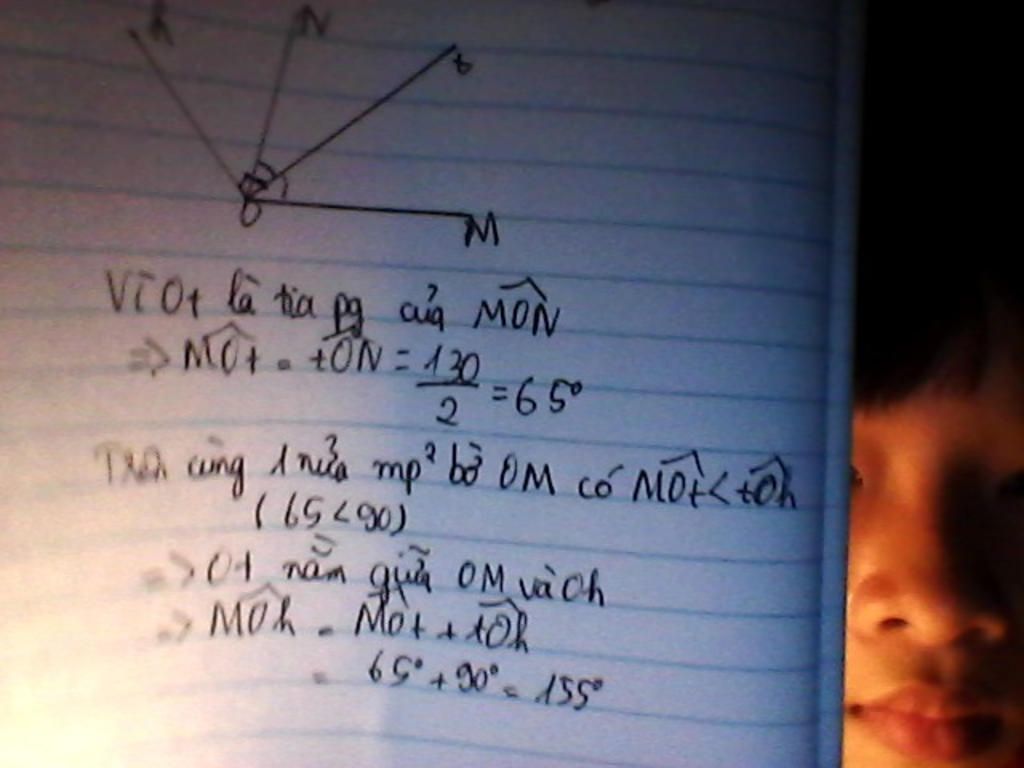 h N t
O M
Vì Ot là tia pg của MÔN
=> MÔt = tÔN = 130/2 = 65°
Trên cùng 1 nửa mp² bờ OM có MÔt < tÔh
(65 < 90)
=> Ot nằm giữa OM và Oh
=> MÔh = MÔt + tÔh
= 65° + 90° = 155°